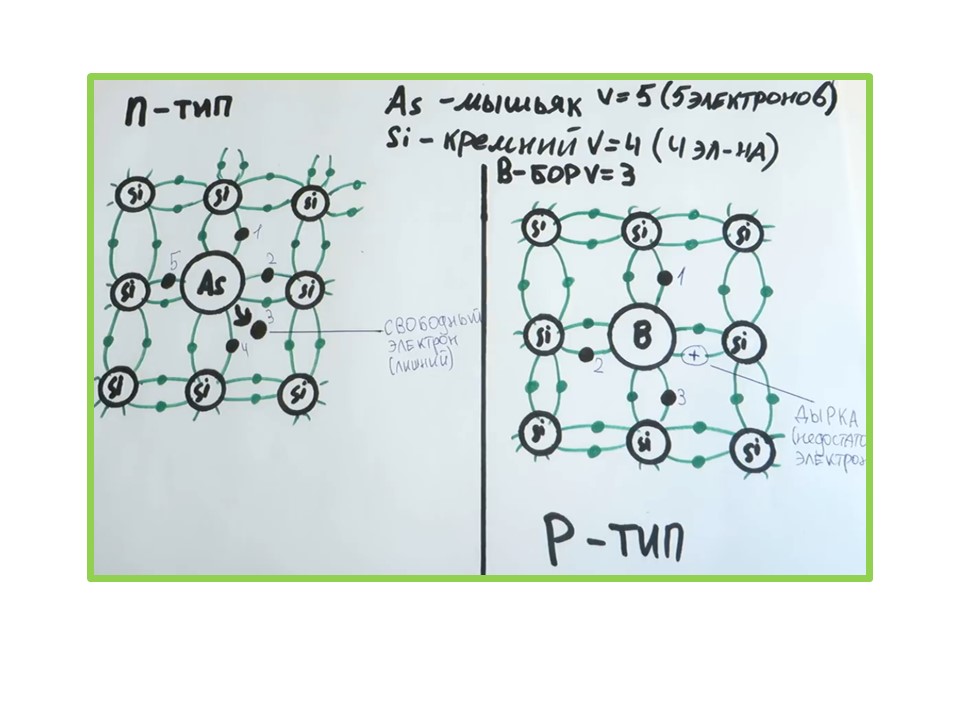 n-тип
As - мышьяк V=5 (5 электронов)
Si - кремний V=4 (4 эл-на)
В-БОР V=3
Si Si Si
1
5 2
Si As Si
3
4
Si Si Si
СВОБОДНЫЙ
ЭЛЕКТРОН
(лишний)
Si Si Si
1
Si B Si
2 +
3
Si Si Si
ДЫРКА
(недостато
ЭЛЕКТРОН
P-тип